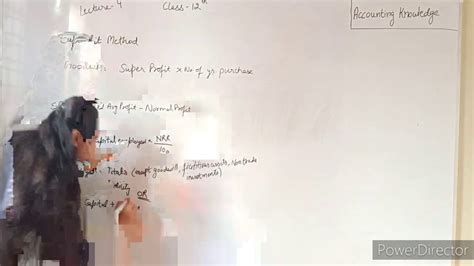 Lecture-4 Class-12th
Accounting Knowledge
Method
Super Profit × No of yr. purchase
Avg Profit - Normal Profit
Capital employed × NRR
100
Totals (except goodwill, fictitious assets, Non Trade
investments)
OR
Capital +
PowerDirector